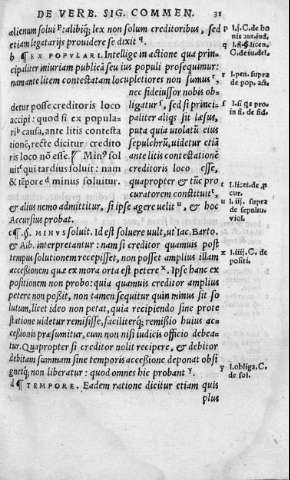 DE VERB. SIG. COMMEN. 31
alienum solui zalibiq; lex non solum creditoribus, sed
etiam legatarijs prouidere se dixit
b ¶ EX POPVLARI. Intellige in actione qua prin-
cipaliter iniuriam publicã seu ius populi prosequimur:
nam ante litem contestatam locupletiores non sumus
nec fideiussor nobis ob-
ligatur, sed si princi-
paliter aliqs sit læsus,
puta quia uiolatũ eius
sepulchrũ, uidetur etiã
ante litis contestationẽ
creditoris loco esse,
quapropter & tũc pro
curatorem constituit,
detur posse creditoris loco
accipi: quod si ex popula-
ri causa, ante litis contesta
tionẽ, recte dicitur credito
ris loco nõ esse. ¶ Minꝰ sol
uit qui tardius soluit: nam
& tẽpore minus soluitur.
& alius nemo admittitur, si ipse agere uelit & hoc
Accursius probat.
c ¶ §. MINVS soluit. Id est soluere uult, ut Iac. Barto.
& Alb. interpretantur: nam si creditor quamuis post
tempus solutionem recepisset, non posset amplius illam
accessionem quæ ex mora orta est petere. Ipse hanc ex
positionem non probo: quia quamuis creditor amplius
petere non possit, non tamen sequitur quin minus sit so
lutum, licet ideo non petat, quia recipiendo sine prote
statione uidetur remisisse, faciliterq; remissio huius ac-
cessionis præsumitur, cum non nisi iudicis officio debea-
tur. Quapropter si creditor nolit recipere, & debitor
debitam summam sine temporis accessione deponat obsi
gnetq; non liberatur: quod omnes hic probant
d ¶ TEMPORE. Eadem ratione dicitur etiam quis
plus
l.j. C. de bo
nis
C. de iu. del.
l. pen. supra
de pop. act.
in fi. de fid.
cur.
l. iij. supra
de sepul. uiol.
l. iiij. C. de
positi.
l. obliga. C.
de sol.